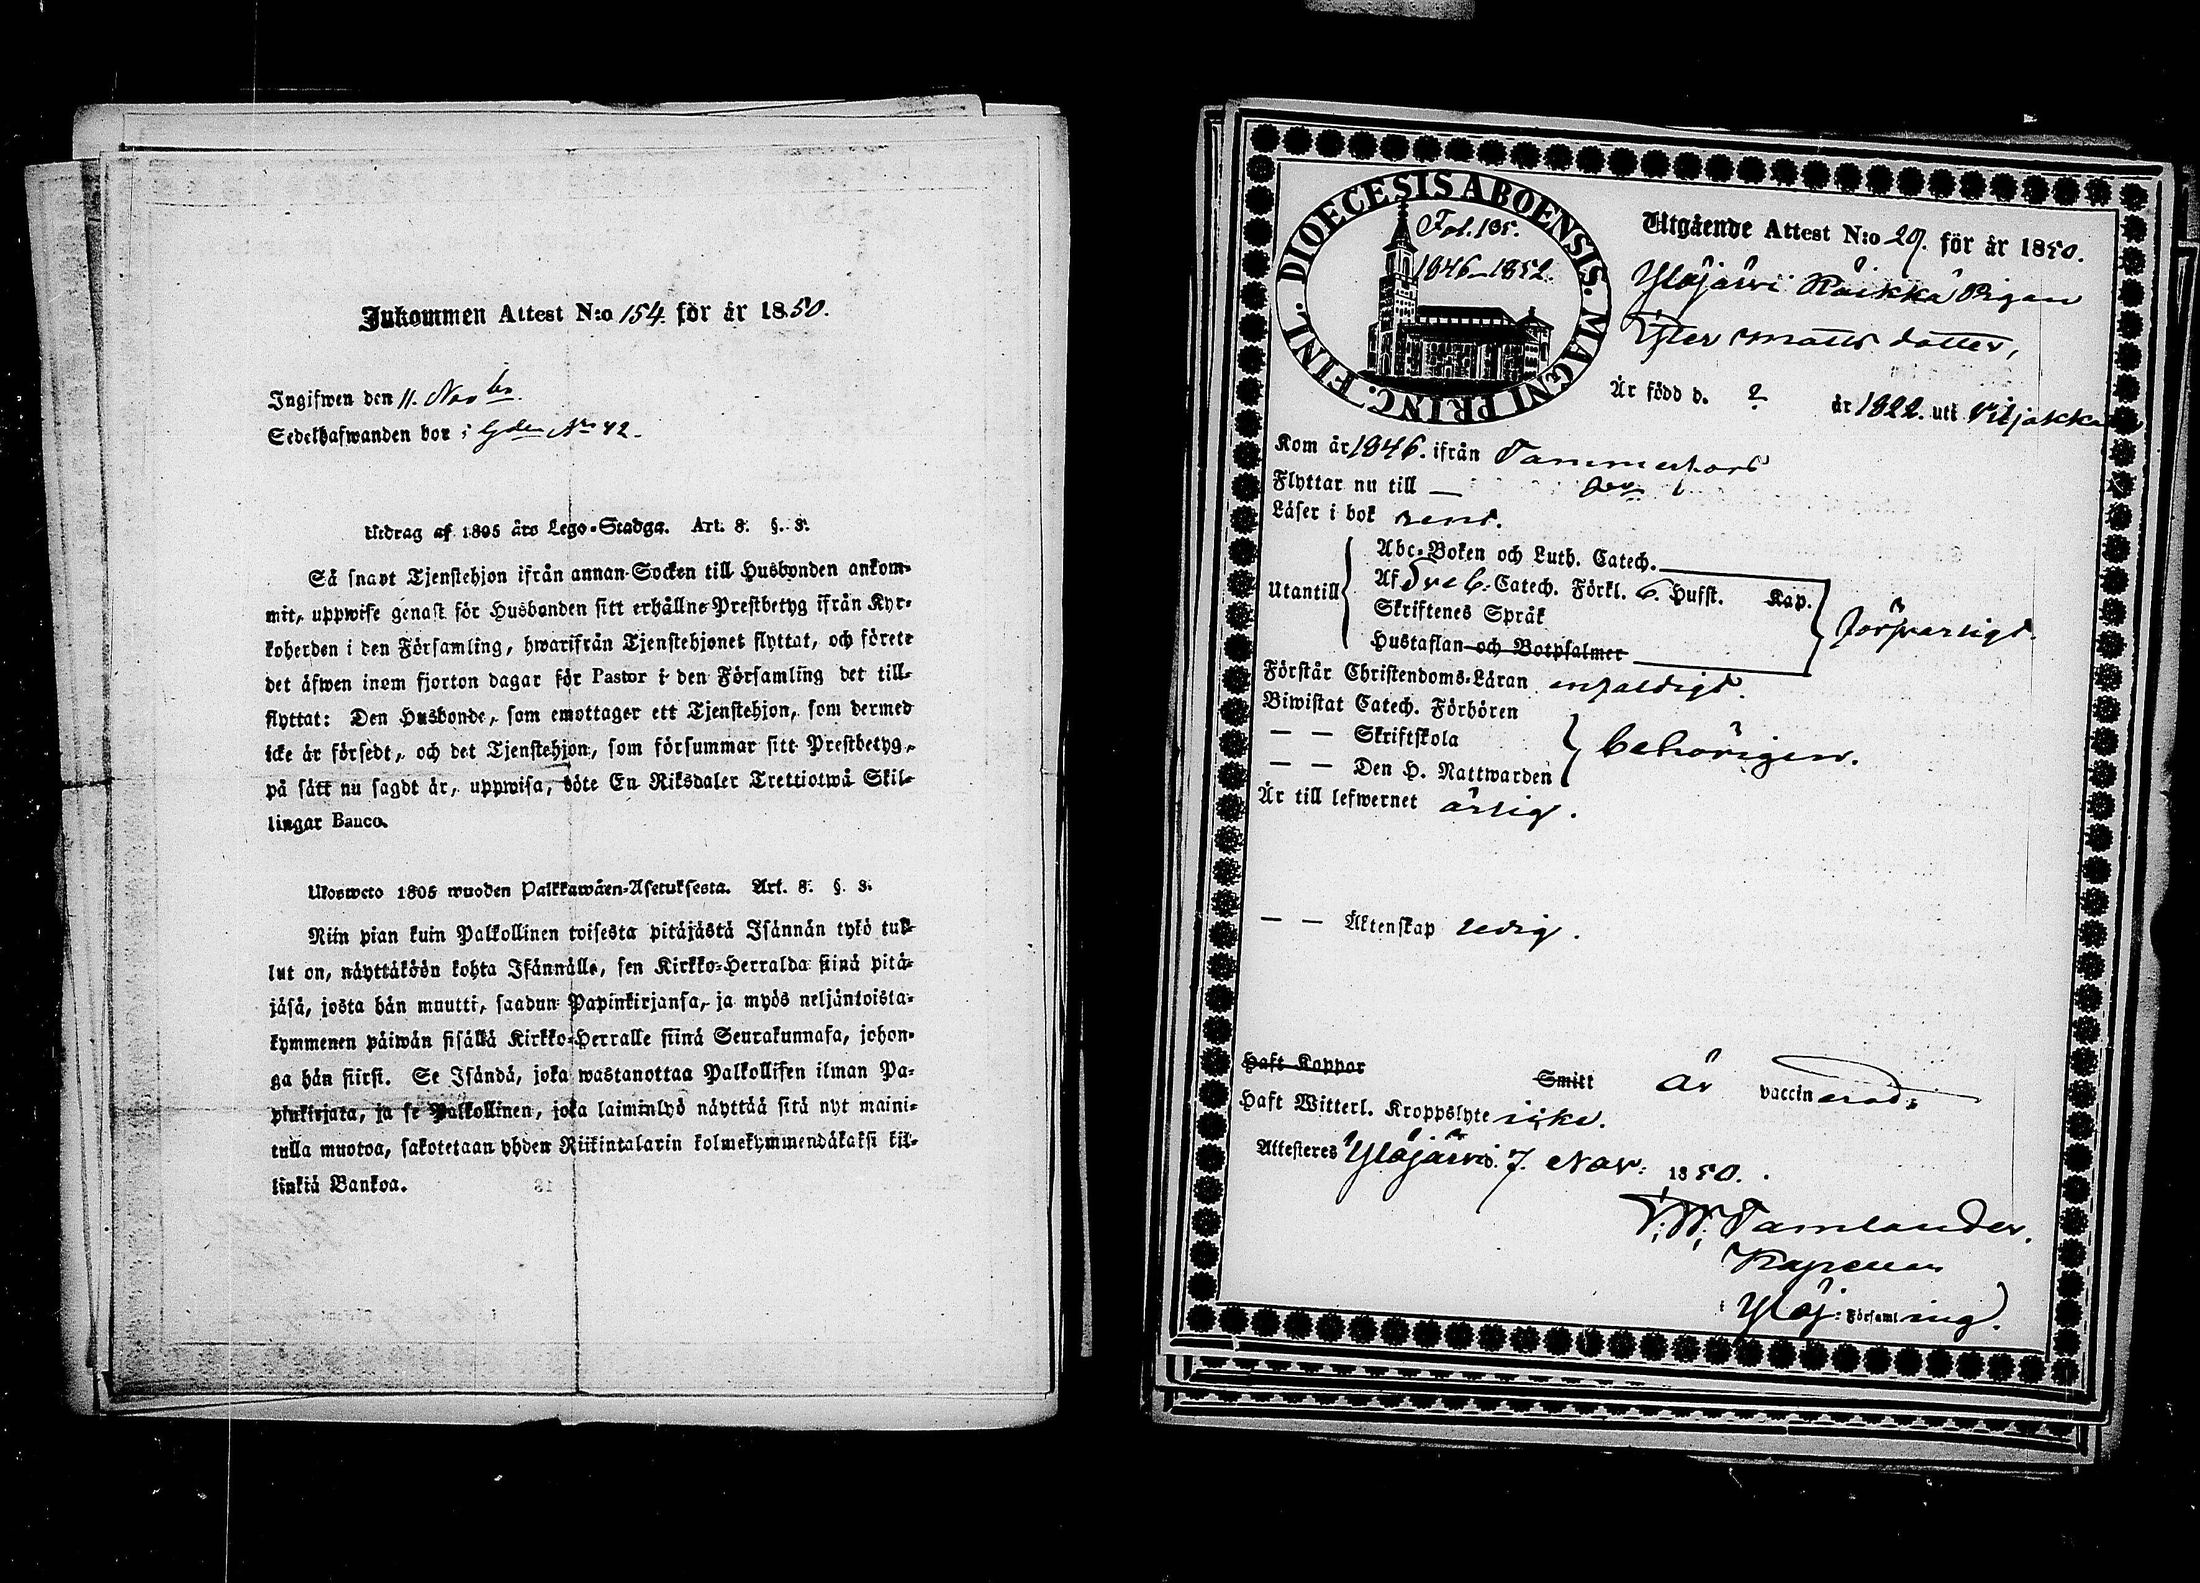 Inkommen Attest N:o 154. för år 1850.
Ingifwen den 11. Novbr.
Sedelhafwanden bor i Gden No 42.
Utdrag af 1805 års Lego-Stadga. Art. 8. §. 3.
Så snart Tjenstehjon ifrån annan Socken till Husbonden ankom-
mit, uppwise genast för Husbonden sitt erhållne Prestbetyg ifrån Kyr-
koherden i den Församling, hwarifrån Tjenstehjonet flyttat, och förete
det äfwen inom fjorton dagar för Pastor i den Församling det till-
flyttat: Den Husbonde, som emottager ett Tjenstehjon, som dermed
icke är försedt, och det Tjenstehjon, som försummar sitt Prestbetyg,
på sätt nu sagdt är, uppwisa, böte En Riksdaler Trettiotwå Skil-
lingar Banco.
Ulosweto 1805 wuoden Palkkawäen-Asetuksesta. Art. 8. §. 3.
Niin pian kuin Palkollinen toisesta pitäjästä Isännän tykö tul-
lut on, näyttäköön kohta Isännälle, sen Kirkko-Herralda siinä pitä-
jäsä, josta hän muutti, saadun Papinkirjansa, ja myös neljäntoista-
kymmenen päiwän sisällä Kirkko-Herralle siinä Seurakunnasa, johon-
ga hän siirsi. Se Isändä, joka wastanottaa Palkollisen ilman Pa-
pinkirjata, ja se Palkollinen, joka laiminlyö näyttää sitä nyt maini-
tulla muotoa, sakotetaan yhden Riikintalarin kolmekymmendäkaksi kil-
linkiä Bankoa.
DIOECESIS ABOENSIS. MAGNI PRINC. FINL.
Fol. 195.
1846-1852.
Utgående Attest N:o 29. för år 1850.
Ylöjärvi Räikkä Pigan
Matts dotter,
Är född d. ? år 1822. uti Viljakka
Kom år 1846. ifrån Tammerfors
Flyttar nu till —
Läser i bok rent.
Utantill
Abc-Boken och Luth. Catech.
Af Sveb. Catech. Förkl. 6. Hufst. Kap.
Skriftenes Språk
Hustaflan och Botpsalmer
försvarligt.
Förstår Christendoms-Läran enfaldigt.
Biwistat Catech. Förhören
— — Skriftskola
— — Den H. Nattwarden
behörigen.
Är till lefwernet ärlig.
— — Äktenskap ledig.
Haft Koppor Smitt är vaccinerad.
Haft Witterl. Kroppslyte icke.
Attesteres Ylöjärvi d. 7. Nov: 1850.
Tamlander.
Kapellan
i Ylöj: Församling.